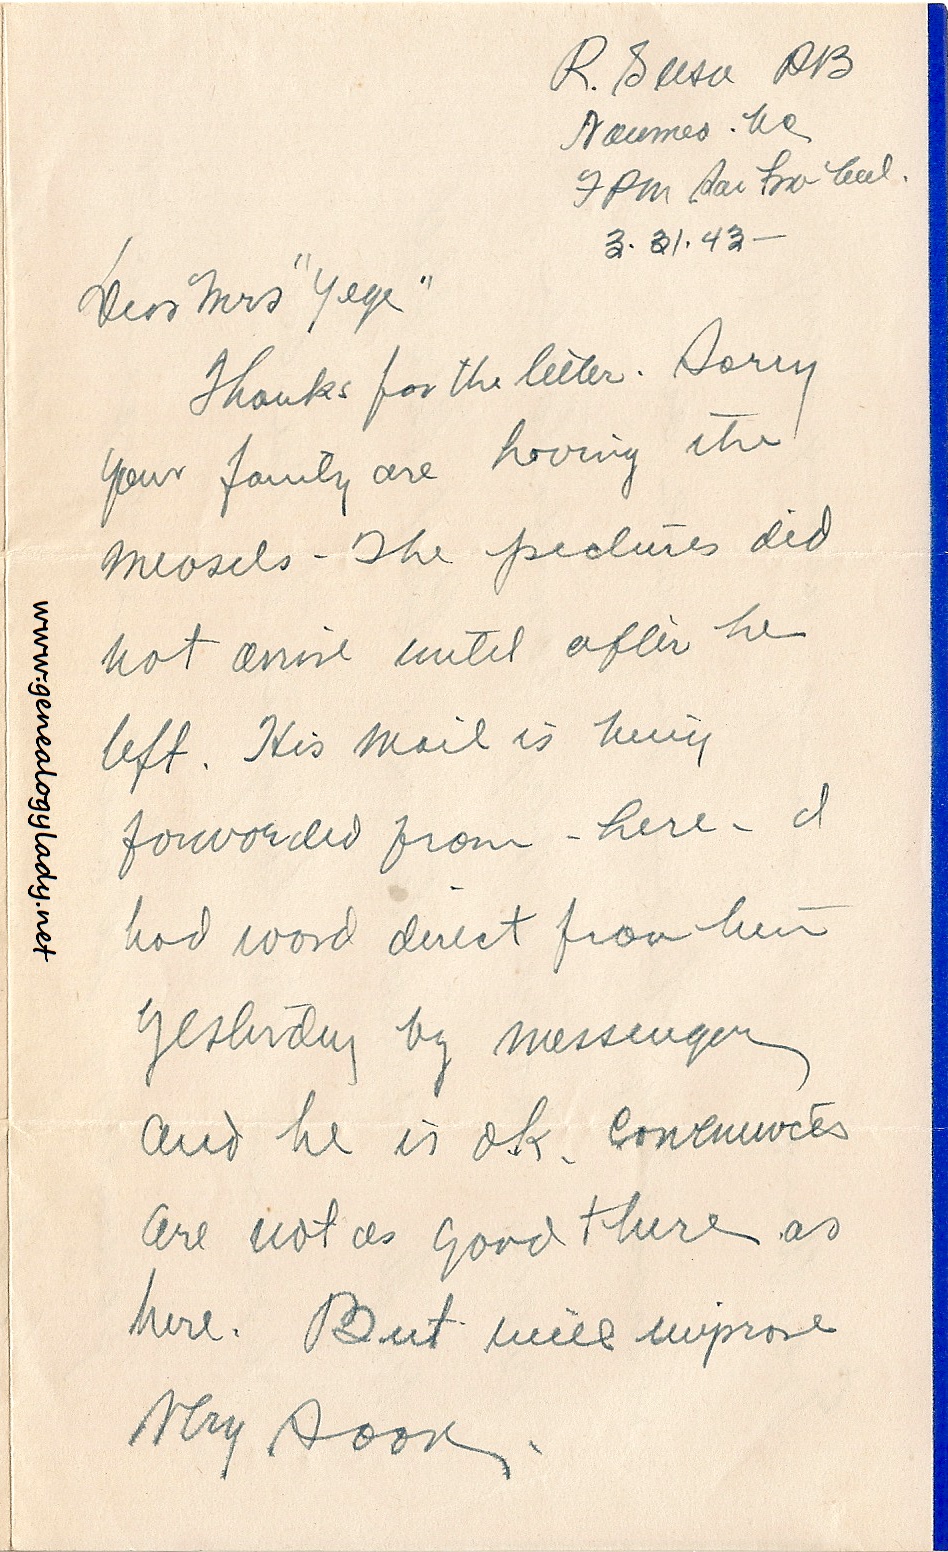 R.
Noumea. NC
FPM San Fran Cal.
3.31.43 —
Dear Mrs "Yege"
Thanks for the letter. Sorry
your family are having the
measels - The pictures did
not arrive until after he
left. His mail is being
forwarded from - here - I
had word direct from him
yesterday by messenger
and he is ok.
are not as good there as
here. But will improve
very soon.
www.genealogylady.net